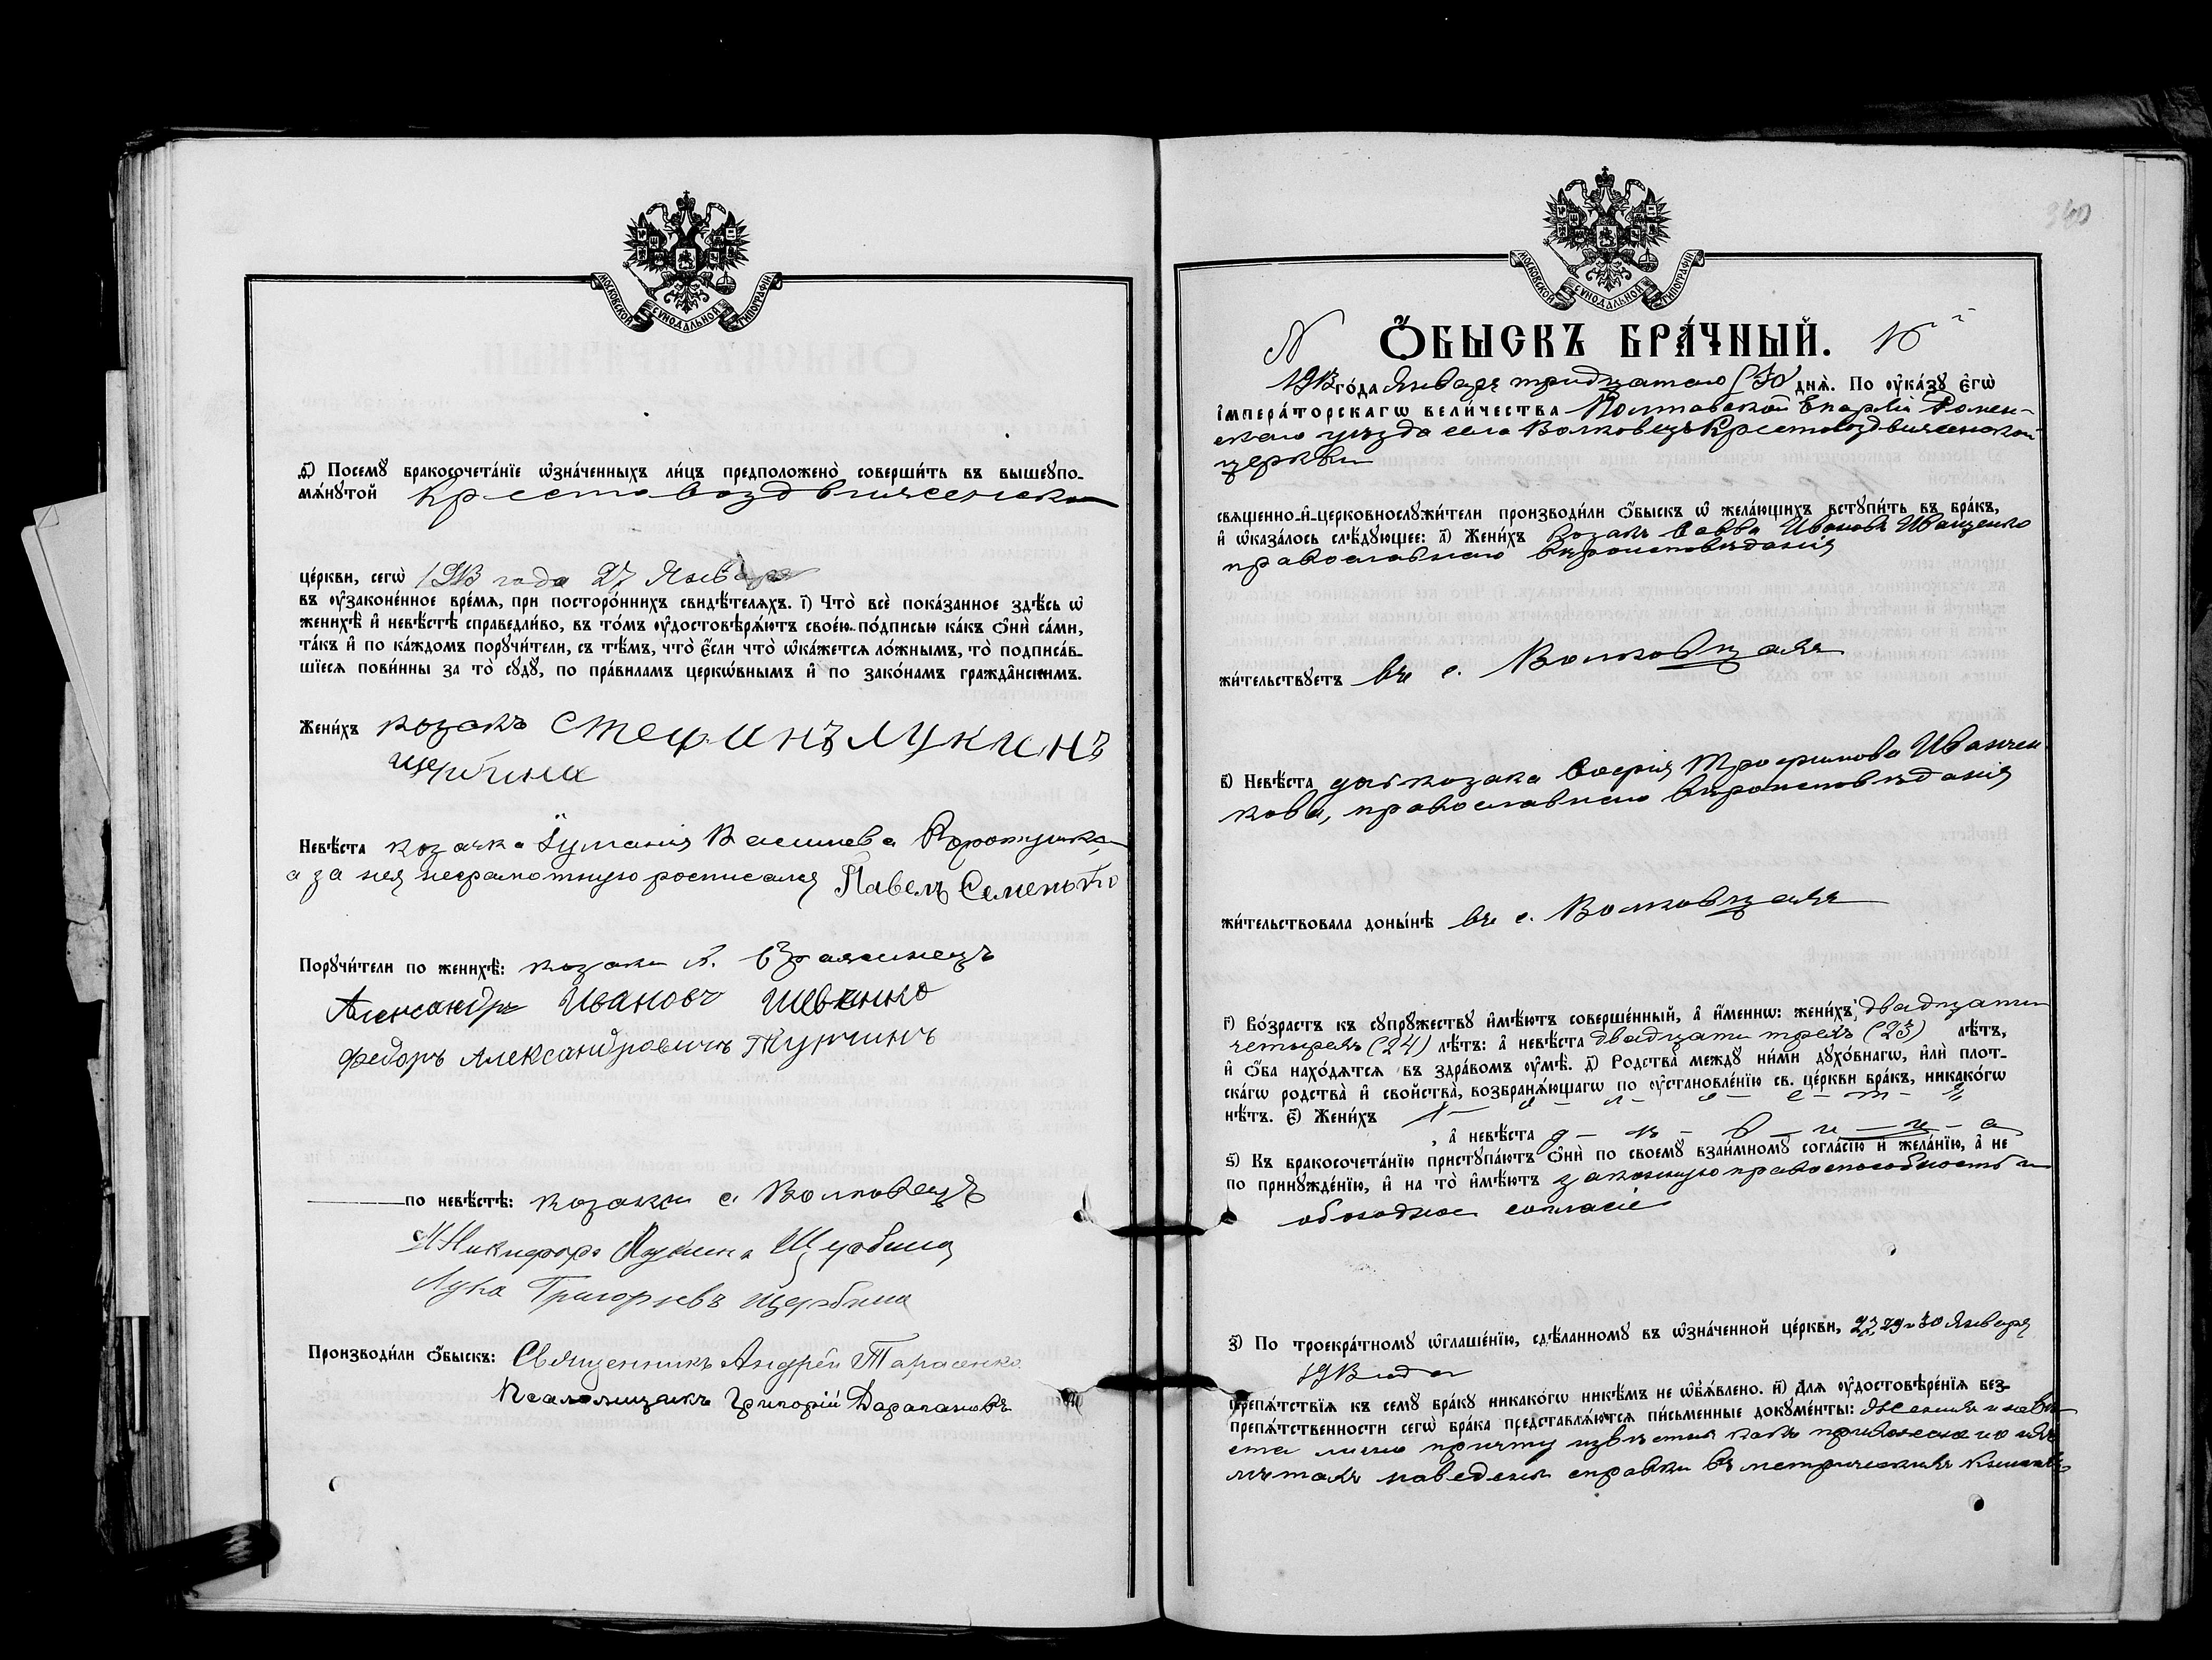 МОСКОВСКОЙ СУНОДАЛЬНОЙ ТИПОГРАФІИ
Ѳ҃) Посемꙋ бракосочета́нїе ѡ҆зна́ченныхъ ли́цъ предположено̀ соверши́ть въ вышеꙋпо-
мѧ́нꙋтой Крестовоздвиженской
це́ркви, сегѡ̀ 1913 года 27 Января
въ ᲂу҆законе́нное вре́мѧ, при посторо́ннихъ свидѣ́телѧхъ. І҃) Что̀ всѐ пока́занное здѣ́сь ѡ҆
женихѣ̀ и҆ невѣ́стѣ справедли́во, въ то́мъ ᲂу҆достовѣрѧ́ютъ свое́ю по́дписью ка́къ ѻ҆нѝ са́ми,
та́къ и҆ по ка́ждомъ порꙋчи́тели, съ тѣ́мъ, что̀ є҆́сли что̀ ѡ҆ка́жетсѧ ло́жнымъ, то̀ подписа́в-
шїесѧ пови́нны за то̀ сꙋдꙋ̀, по пра́виламъ церкѡ́внымъ и҆ по зако́намъ гражда̑нскимъ.
Жени́хъ козакъ Стефинъ Лукинъ
Щербина
Невѣ́ста козачка Васильева
а за нея неграмотную росписался Павелъ
Порꙋчи́тели по женихѣ̀: козаки
Александръ Ивановъ Шевченко
Федоръ Александровичъ
по невѣ́стѣ: козаки с. Волковецъ
Никифоръ Лукинъ Щербина
Лука Григорьевъ Щербина
Производи́ли ѻ҆́быскъ: Священникъ Андрей Тарасенко
Псаломщикъ Григорій
МОСКОВСКОЙ СУНОДАЛЬНОЙ ТИПОГРАФІИ
340
N Ѻ҆́БЫСКЪ БРА́ЧНЫЙ. 16й
1913 го́да Января тридцатаго (30 днѧ̀. По ᲂу҆ка́зꙋ є҆гѡ̀
і҆мпера́торскагѡ вели́чества Полтавской Епархіи Ромен-
скаго уѣзда села Волковецъ Крестовоздвиженской
церкви
свѧще́нно-и҆-церковнослꙋжи́тели производи́ли ѻ҆́быскъ ѡ҆ жела́ющихъ встꙋпи́ть въ бра́къ,
и҆ ѡ҆каза́лось слѣ́дꙋющее: А҃) Жени́хъ козакъ Савва Ивановъ Иващенко
православнаго вѣроисповѣданія
жи́тельствꙋетъ въ с. Волковцахъ
В҃) Невѣ́ста дочь козака Софія Трофимова Иванчен-
кова, православнаго вѣроисповѣданія
жи́тельствовала доны́нѣ въ с. Волковцахъ
Г҃) Во́зрастъ къ сꙋпрꙋ́жествꙋ и҆мѣ́ютъ соверше́нный, а҆ и҆́меннѡ: жени́хъ двадцати
четырехъ (24) лѣ́тъ: а҆ невѣ́ста двадцати трехъ (23) лѣ́тъ,
и҆ ѻ҆́ба нахо́дѧтсѧ въ здра́вомъ ᲂу҆мѣ̀. Д҃) Родства̀ междꙋ̀ ни́ми дꙋхо́внагѡ, и҆лѝ плот-
ска́гѡ родства̀ и҆ сво́йства̀, возбранѧ́ющагѡ по ᲂу҆становле́нїю св. це́ркви бра́къ, никако́гѡ
нѣ́тъ. Є҃) Жени́хъ х - о - л - о - с - т - ъ
, а҆ невѣ́ста д - ѣ - в - и - ц - а
Ѕ҃) Къ бракосочета́нїю пристꙋпа́ютъ ѻ҆нѝ по своемꙋ̀ взаи́мномꙋ согла́сїю и҆ жела́нїю, а҆ не
по принꙋжде́нїю, и҆ на то̀ и҆мѣ́ютъ законную правоспособность и
обоюдное согласіе
З҃) По троекра́тномꙋ ѡ҆глаше́нїю, сдѣ́ланномꙋ въ ѡ҆зна́ченной це́ркви, 27, 29 и 30 Января
1913 года
препѧ́тствїѧ къ семꙋ̀ бра́кꙋ никако́гѡ никѣ́мъ не ѡ҆б̾ѧ́влено. И҃) Длѧ̀ ᲂу҆достовѣре́нїѧ без-
препѧ́тственности сегѡ̀ бра́ка представлѧ́ютсѧ пи́сьменные докꙋме́нты: Женихъ и невѣ-
ста лично причту извѣстны какъ прихожане о ихъ
лѣтахъ наведены справки въ метрическихъ книгахъ